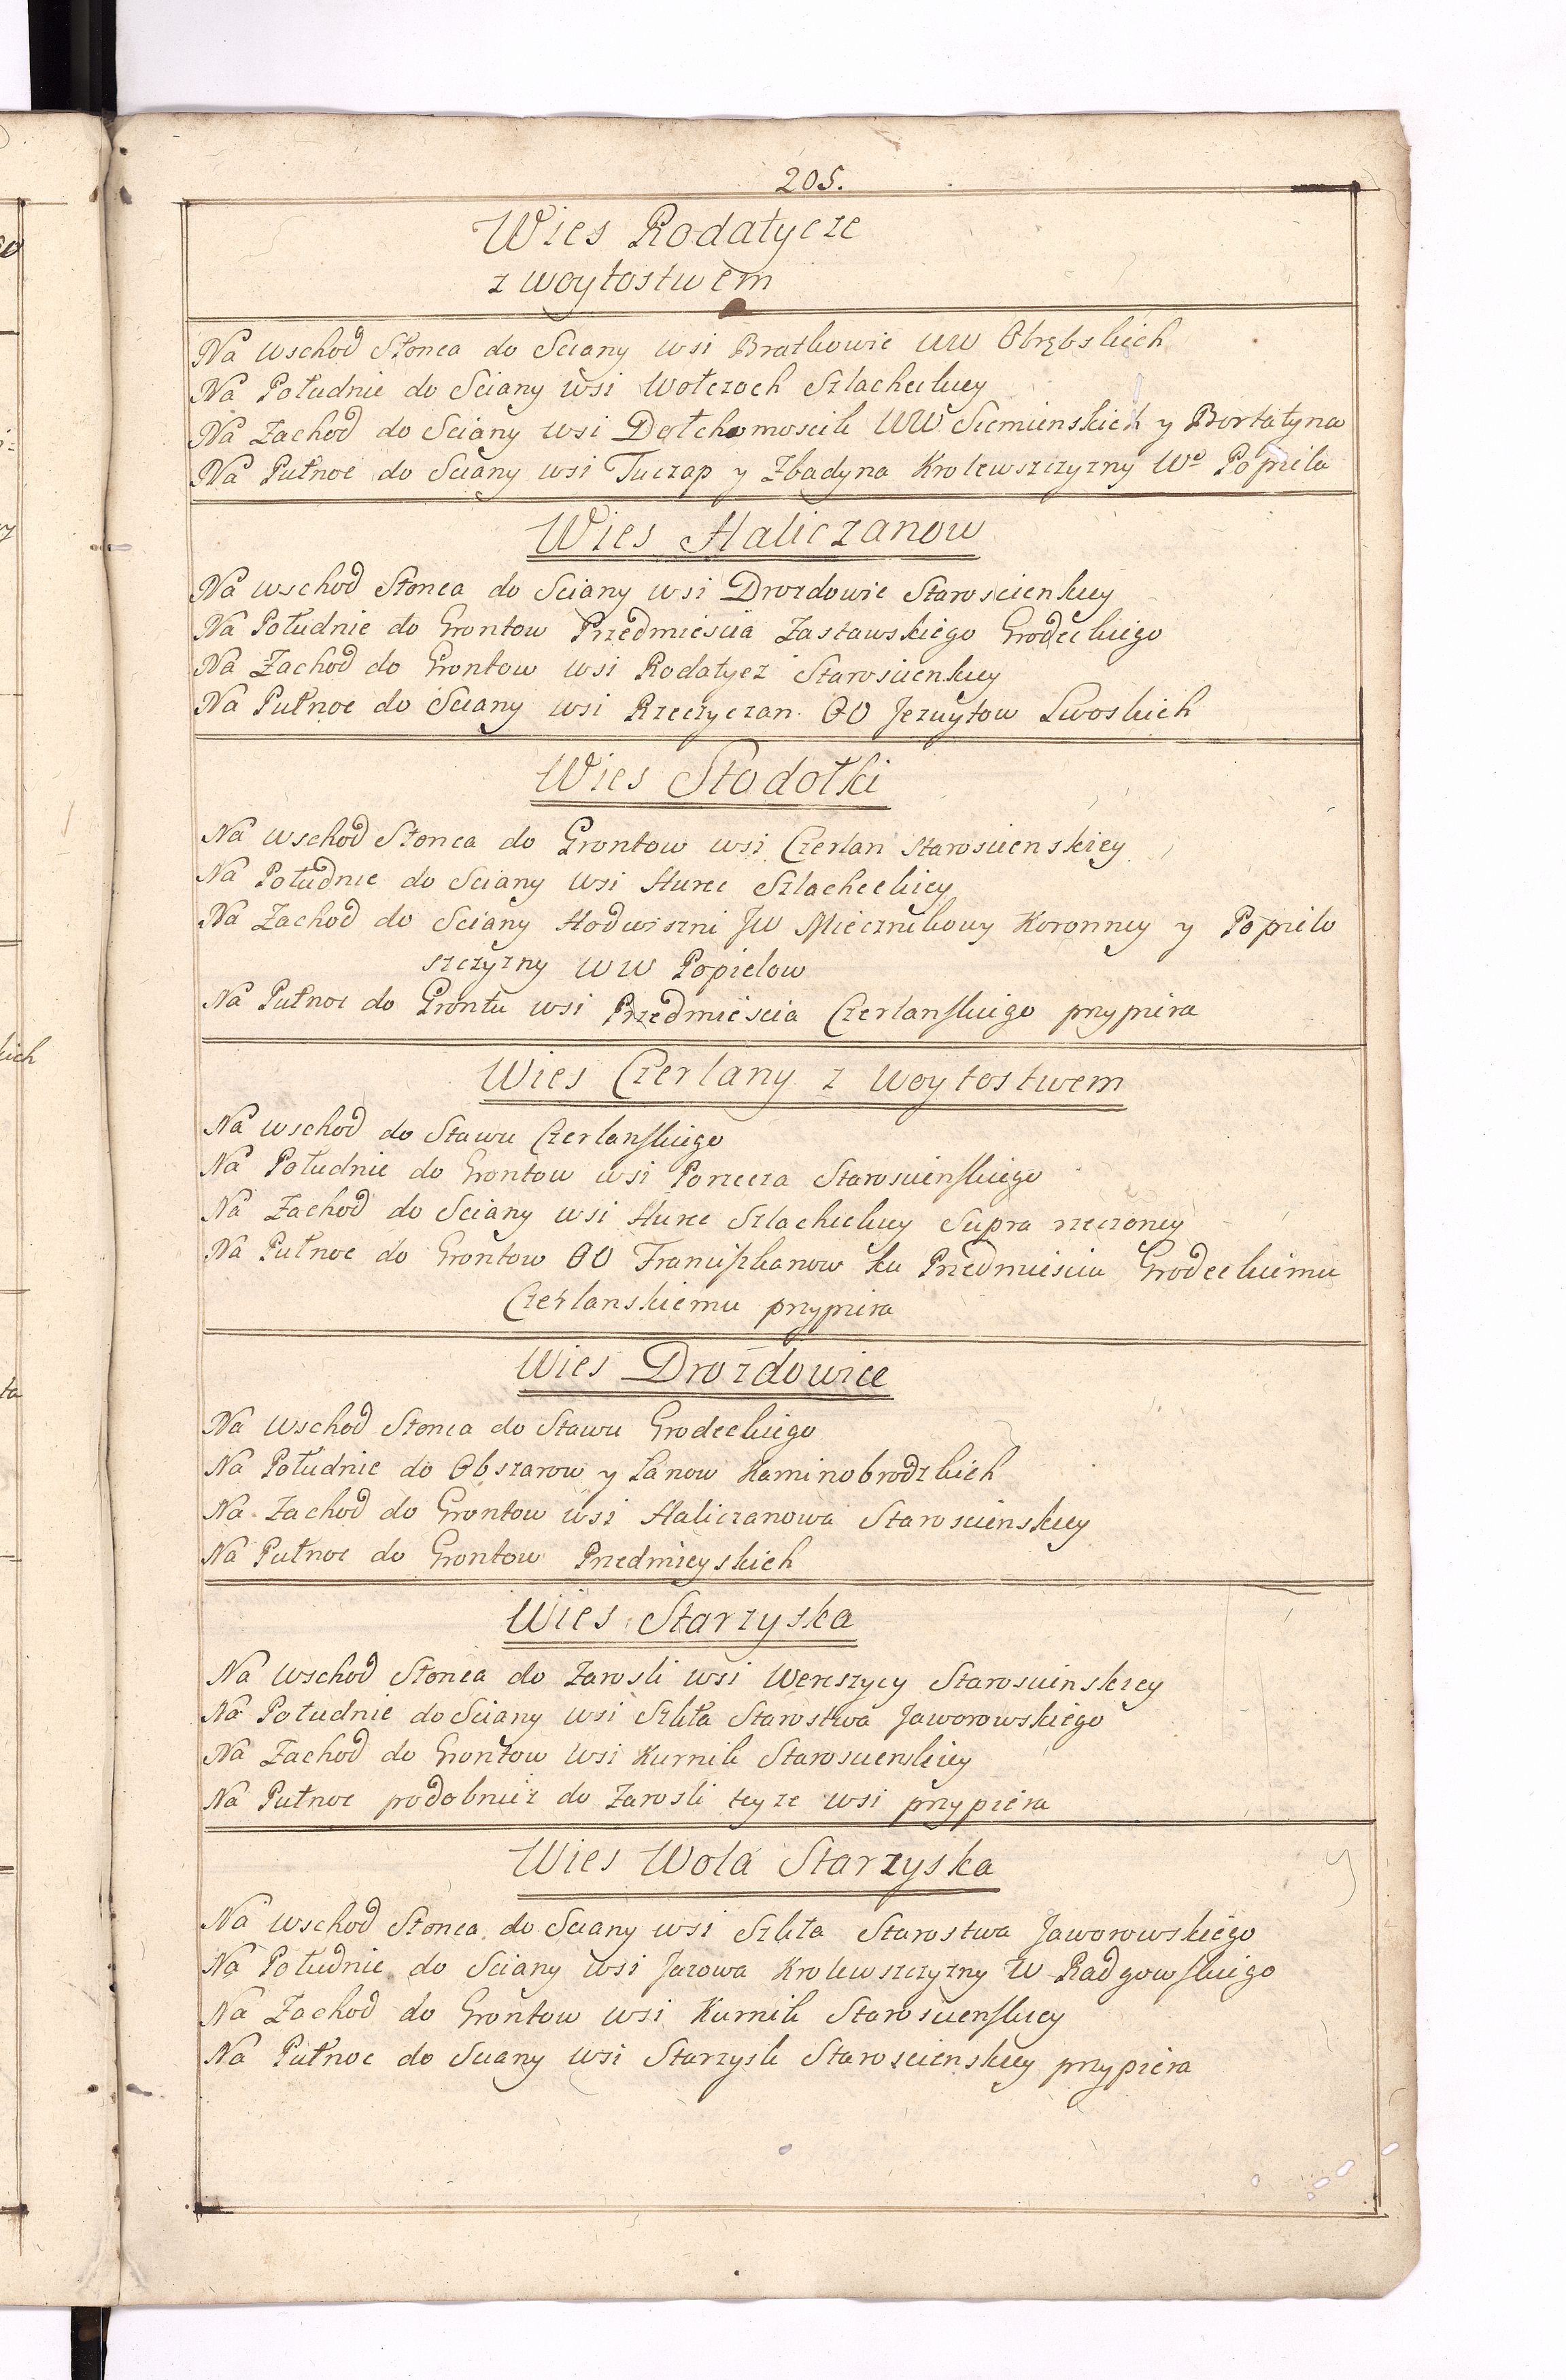 205.
Wies Rodatycze
z woytostwem
Na wschod Słonca do Sciany wsi Bratkowic WW Obrębskich
Na Południe do Sciany wsi Wołczoch Szlacheckiey
Na Zachod do Sciany wsi Dołchomoscik WW Siemienskich y Bortatyna
Na Pułnoc do Sciany wsi Tuczap y Zbadyna Krolewszczyzny Wo Popiela
Wies Haliczanow
Na wschod Słonca do Sciany wsi Drozdowic Staroscienskiey
Na Południe do Grontow Przedmiescia Zastawskiego Grodeckiego
Na Zachod do Grontow wsi Rodatycz Staroscienskiey
Na Pułnoc do Sciany wsi Rzeczyczan OO Jezuytow Lwoskich
Wies Stodołki
Na wschod Słonca do Grontow wsi Czerlan Staroscienskiey
Na Południe do Sciany wsi Hurec Szlacheckiey
Na Zachod do Sciany Hodwiszni JW Miecznikowy Koronney y Popielo
szczyzny WW Popielow
Na Pułnoc do Grontu wsi Przedmiescia Czerlanskiego przypiera
Wies Czerlany z woytostwem
Na wschod do Stawu Czerlanskiego
Na Południe do Grontow wsi Porzecza Staroscienskiego
Na Zachod do Sciany wsi Hurec Szlacheckiey Supra rzeczoney
Na Pułnoc do Grontow OO Franciszkanow ku Przedmiesciu Grodeckiemu
Czerlanskiemu przypiera
Wies Drozdowice
Na wschod Słonca do Stawu Grodeckiego
Na Południe do Obszarow y Łanow Kaminobrodzkich
Na Zachod do Grontow wsi Haliczanowa Staroscienskiey
Na Pułnoc do Grontow Przedmieyskich
Wies Starzyska
Na wschod Słonca do Zarosli wsi Wereszycy Staroscienskiey
Na Południe do Sciany wsi Szkła Starostwa Jaworowskiego
Na Zachod do Grontow wsi Kurnik Staroscienskiey
Na Pułnoc podobniez do Zarosli teyze wsi przypiera
Wies Wola Starzyska
Na wschod Słonca do Sciany wsi Szkła Starostwa Jaworowskiego
Na Południe do Sciany wsi Jazowa Krolewszczyzny W Radgowskiego
Na Zachod do Grontow wsi Kurnik Staroscienskiey
Na Pułnoc do Sciany wsi Starzysk Staroscienskiey przypiera